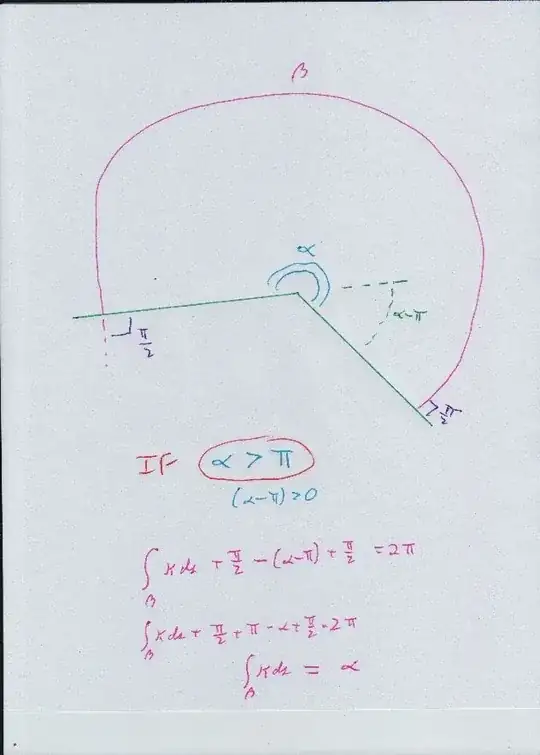 β
α
α-π
π/2
π/2
IF α > π
(α-π) > 0
∫_β κ ds + π/2 - (α-π) + π/2 = 2π
∫_β κ ds + π/2 + π - α + π/2 = 2π
∫_β κ ds = α